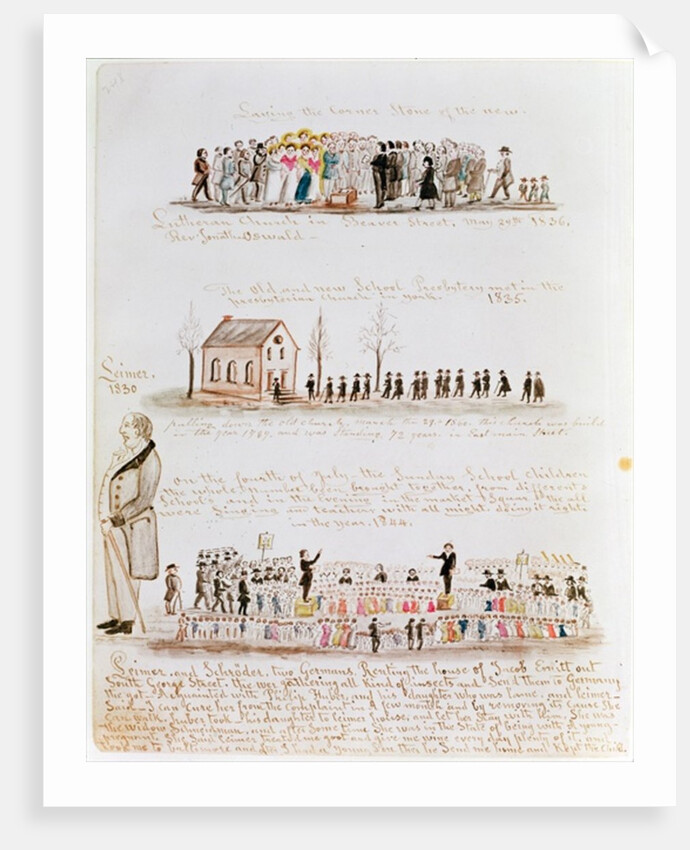 Laying the Corner Stone of the new.
Lutheran Church in Beaver Street. May 29th 1836.
Rev Jonathan Oswald —
The Old and new School Presbytery met in the
presbyterian church in york. 1835.
Leimer.
1830
pulling down the old church, march the 29. 1860. this church was build
in the year 1789, and was Standing, 72 years. in East main Street.
On the fourth of July the Sunday School children
the whole number been brought together, from different
Schools and all meeting in the market Square all
were Singing and teachers with all might doing it right
in the year. 1844.
Leimer, and Schröder, two Germans, Renting the house of Jacob Emitt out
South George Street, they gathering all kind of insects and Send them to Germany
he got Acquainted with Philip Huber and his daughter who was Lame, and leimer
Said I can Cure her from the Complaint in a few month and by removing its Cause She
Can walk, huber took his daughter to leimer house, and let her Stay with them, She was
the widow, and after Some time She was in the State of being with a young
She Said Leimer treated me good and give me wine every day plenty of it and
took me to baltimore and I had a Young Son then he Send me home and Kept the Child.